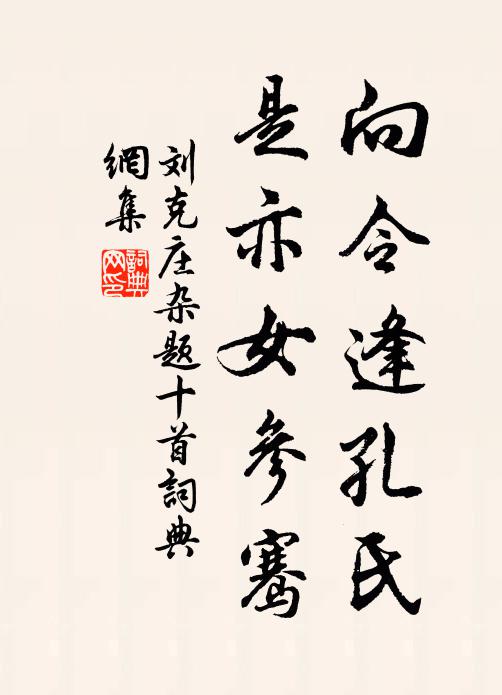 向令逢孔氏
是亦女參騫
刘克庄杂题十首詞典
網集
詞典网印